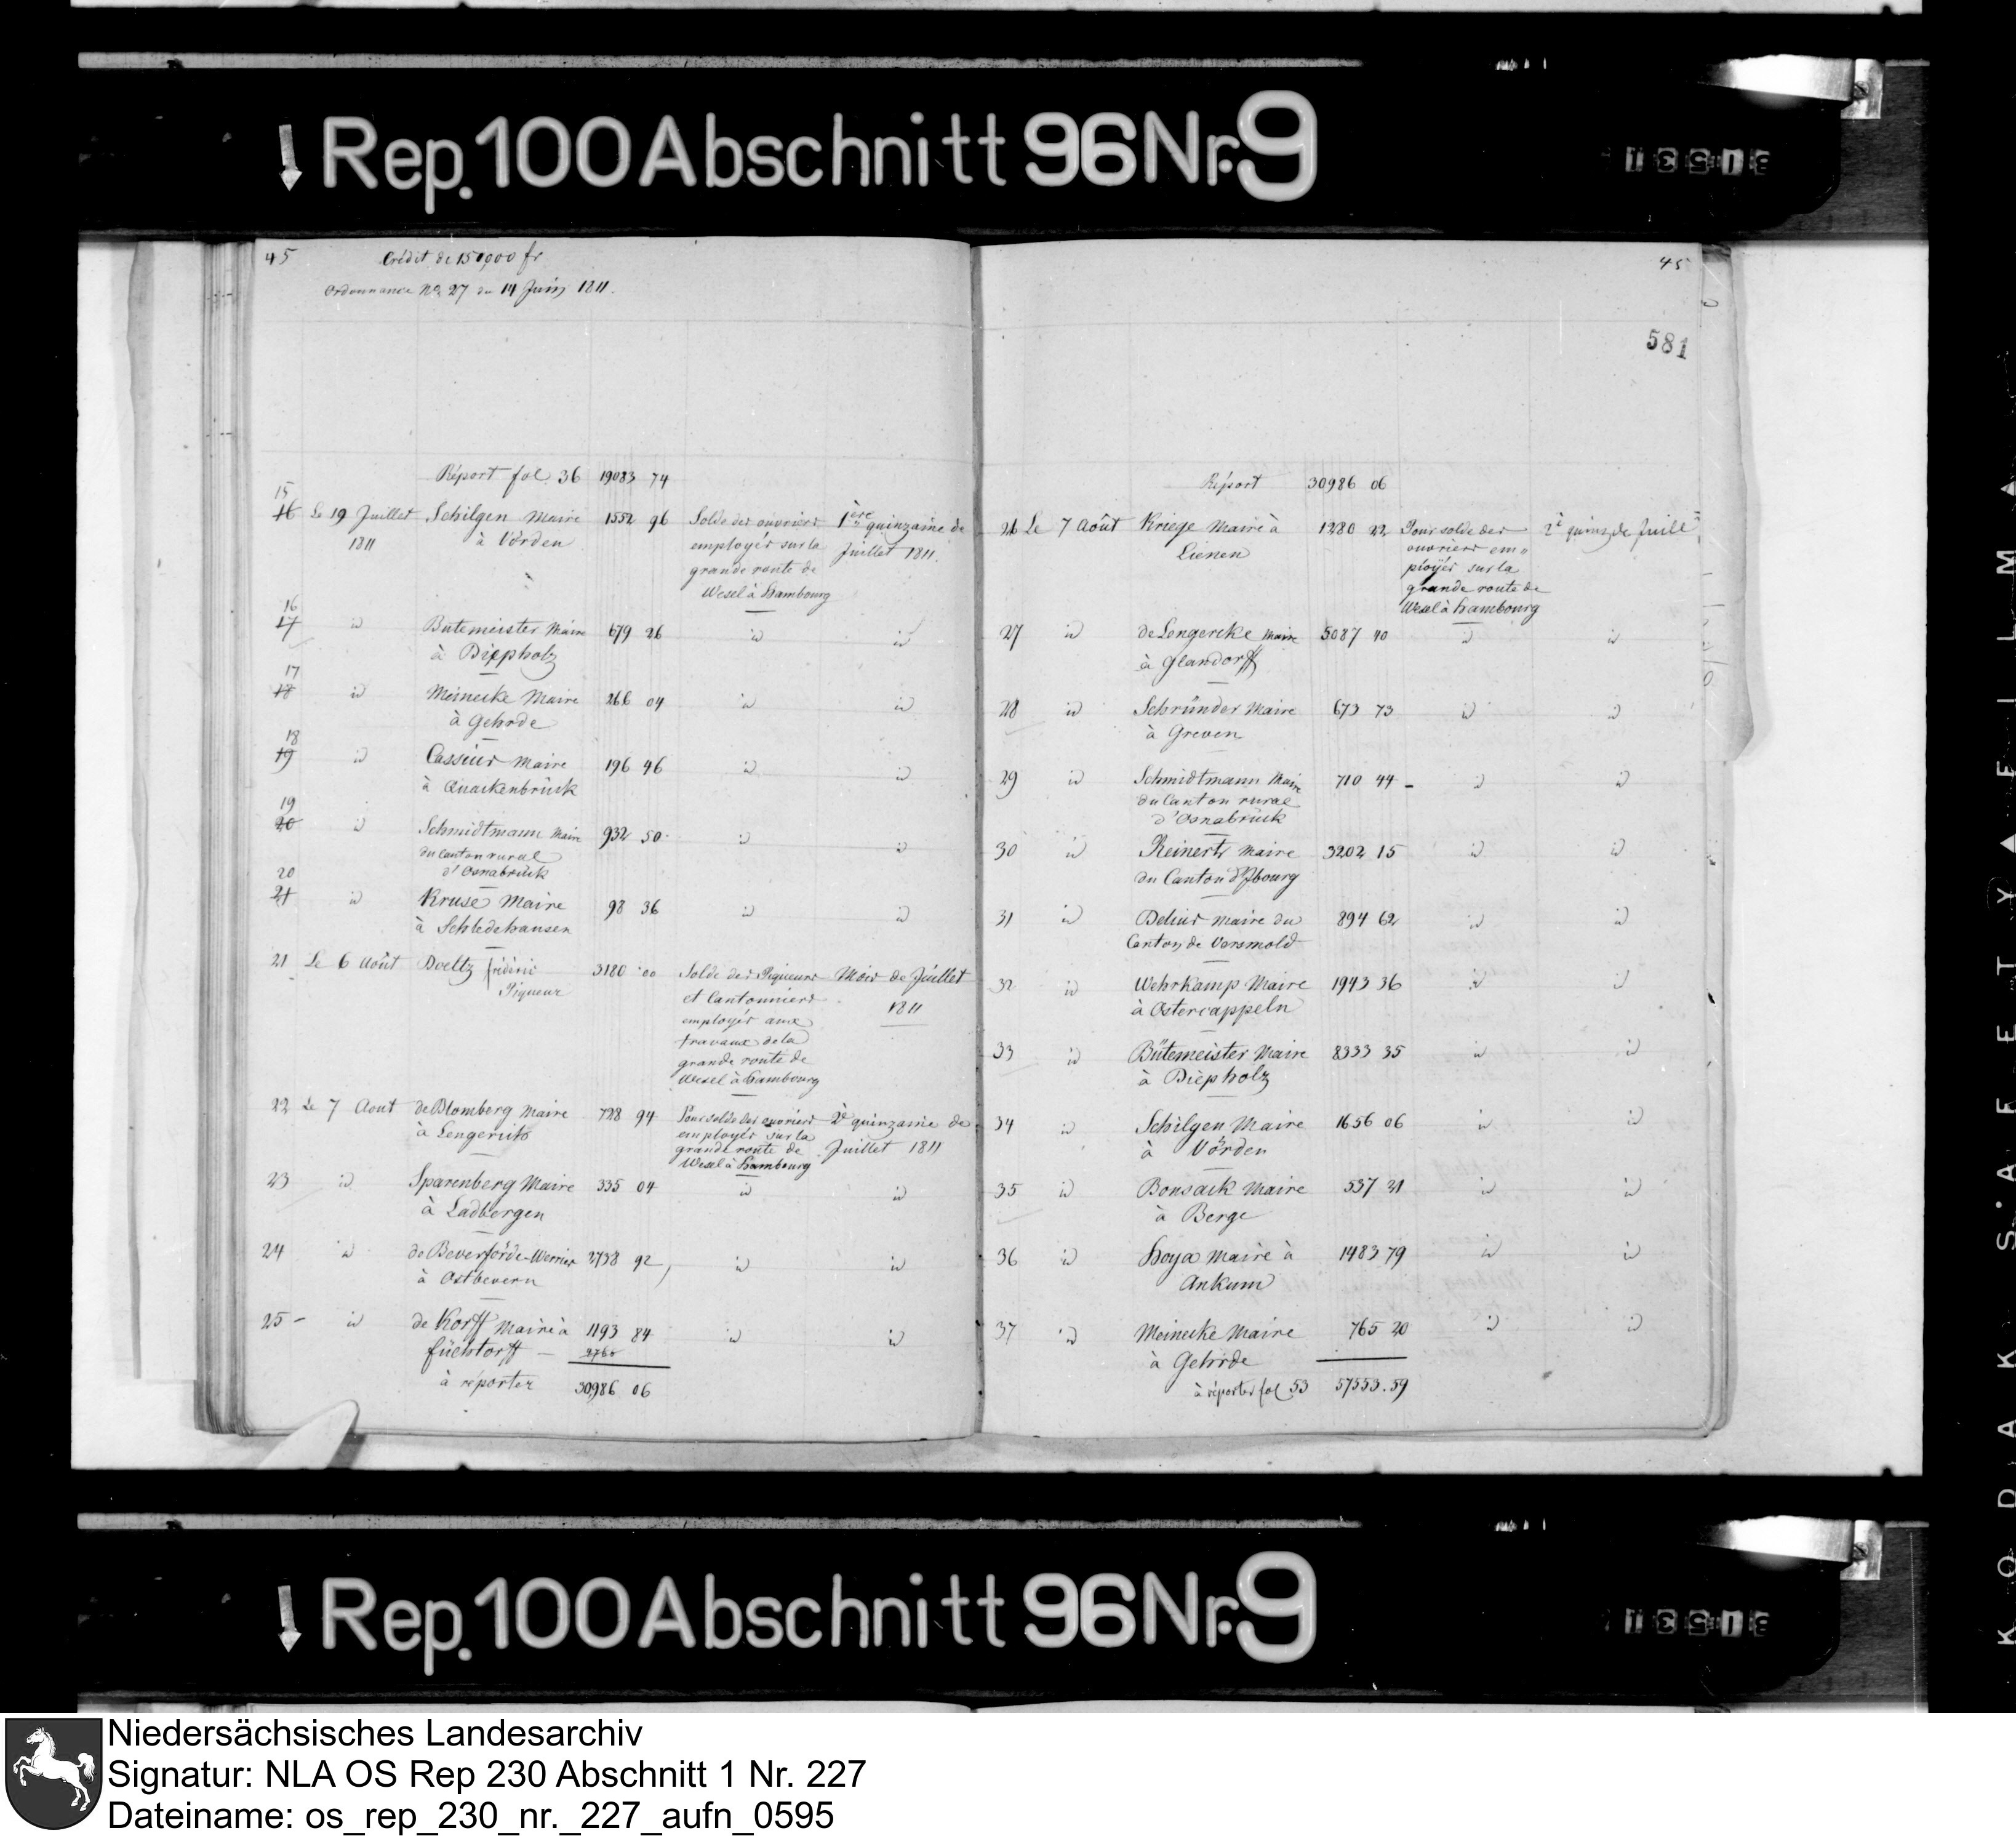 ↓ Rep. 100 Abschnitt 96 Nr. 9
45
Crédit de 150,000 fr
Ordonnance No. 27 du 14 Juin 1811.
Réport fol 36 19083 74
15
16 Le 19 Juillet Schilgen Maire 1552 96 Solde des ouvriers 1ère quinzaine de
1811 à Vörden employés sur la Juillet 1811.
grande route de
Wesel à Hambourg
16
17 id Butemeister Maire 679 26 id id
à Diepholz
17
18 id Meinecke Maire 266 04 id id
à Gehrde
18
19 id Cassius Maire 196 46 id id
à Quackenbrück
19
20 id Schmidtmann Maire 932 50 id id
du Canton rural
d'Osnabrück
20
21 id Kruse Maire 98 36 id id
à Schledehausen
21 Le 6 Août Doeltz fréderic 3180 00 Solde des Piqueurs Mois de Juillet
Piqueur et Cantonniers 1811
employés aux
travaux de la
grande route de
Wesel à Hambourg
22 Le 7 Aout de Blomberg Maire 728 94 Pour solde des ouvriers 2e quinzaine de
à Lengerich employés sur la Juillet 1811
grande route de
Wesel à Hambourg
23 id Sparenberg Maire 335 04 id id
à Ladbergen
24 id de Beverförde-Werries 2738 92 id id
à Ostbevern
25 id de Korff Maire à 1193 84 id id
füchtorff
à réporter 30986 06
45
581
Réport 30986 06
26 Le 7 Août Kriege Maire à 1280 22 Pour solde des 2e quinz de Juill
Lienen ouvriers em
ployés sur la
grande route de
Wesel à Hambourg
27 id de Lengercke Maire 5087 40 id id
à Glandorff
28 id Schründer Maire 673 73 id id
à Greven
29 id Schmidtmann Maire 710 44 id id
du Canton rural
d'Osnabrück
30 id Reinerts Maire 3202 15 id id
du Canton d'Ibourg
31 id Delius Maire du 894 62 id id
Canton de Versmold
32 id Wehrkamp Maire 1943 36 id id
à Ostercappeln
33 id Bütemeister Maire 8333 35 id id
à Diepholz
34 id Schilgen Maire 1656 06 id id
à Vörden
35 id Bonsack Maire 537 21 id id
à Berge
36 id Hoya Maire à 1483 79 id id
Ankum
37 id Meinecke Maire 765 20 id id
à Gehrde
à réporter fol 53 57553.59
↓ Rep. 100 Abschnitt 96 Nr. 9
KODAK SAFETY FILM
Niedersächsisches Landesarchiv
Signatur: NLA OS Rep 230 Abschnitt 1 Nr. 227
Dateiname: os_rep_230_nr._227_aufn_0595